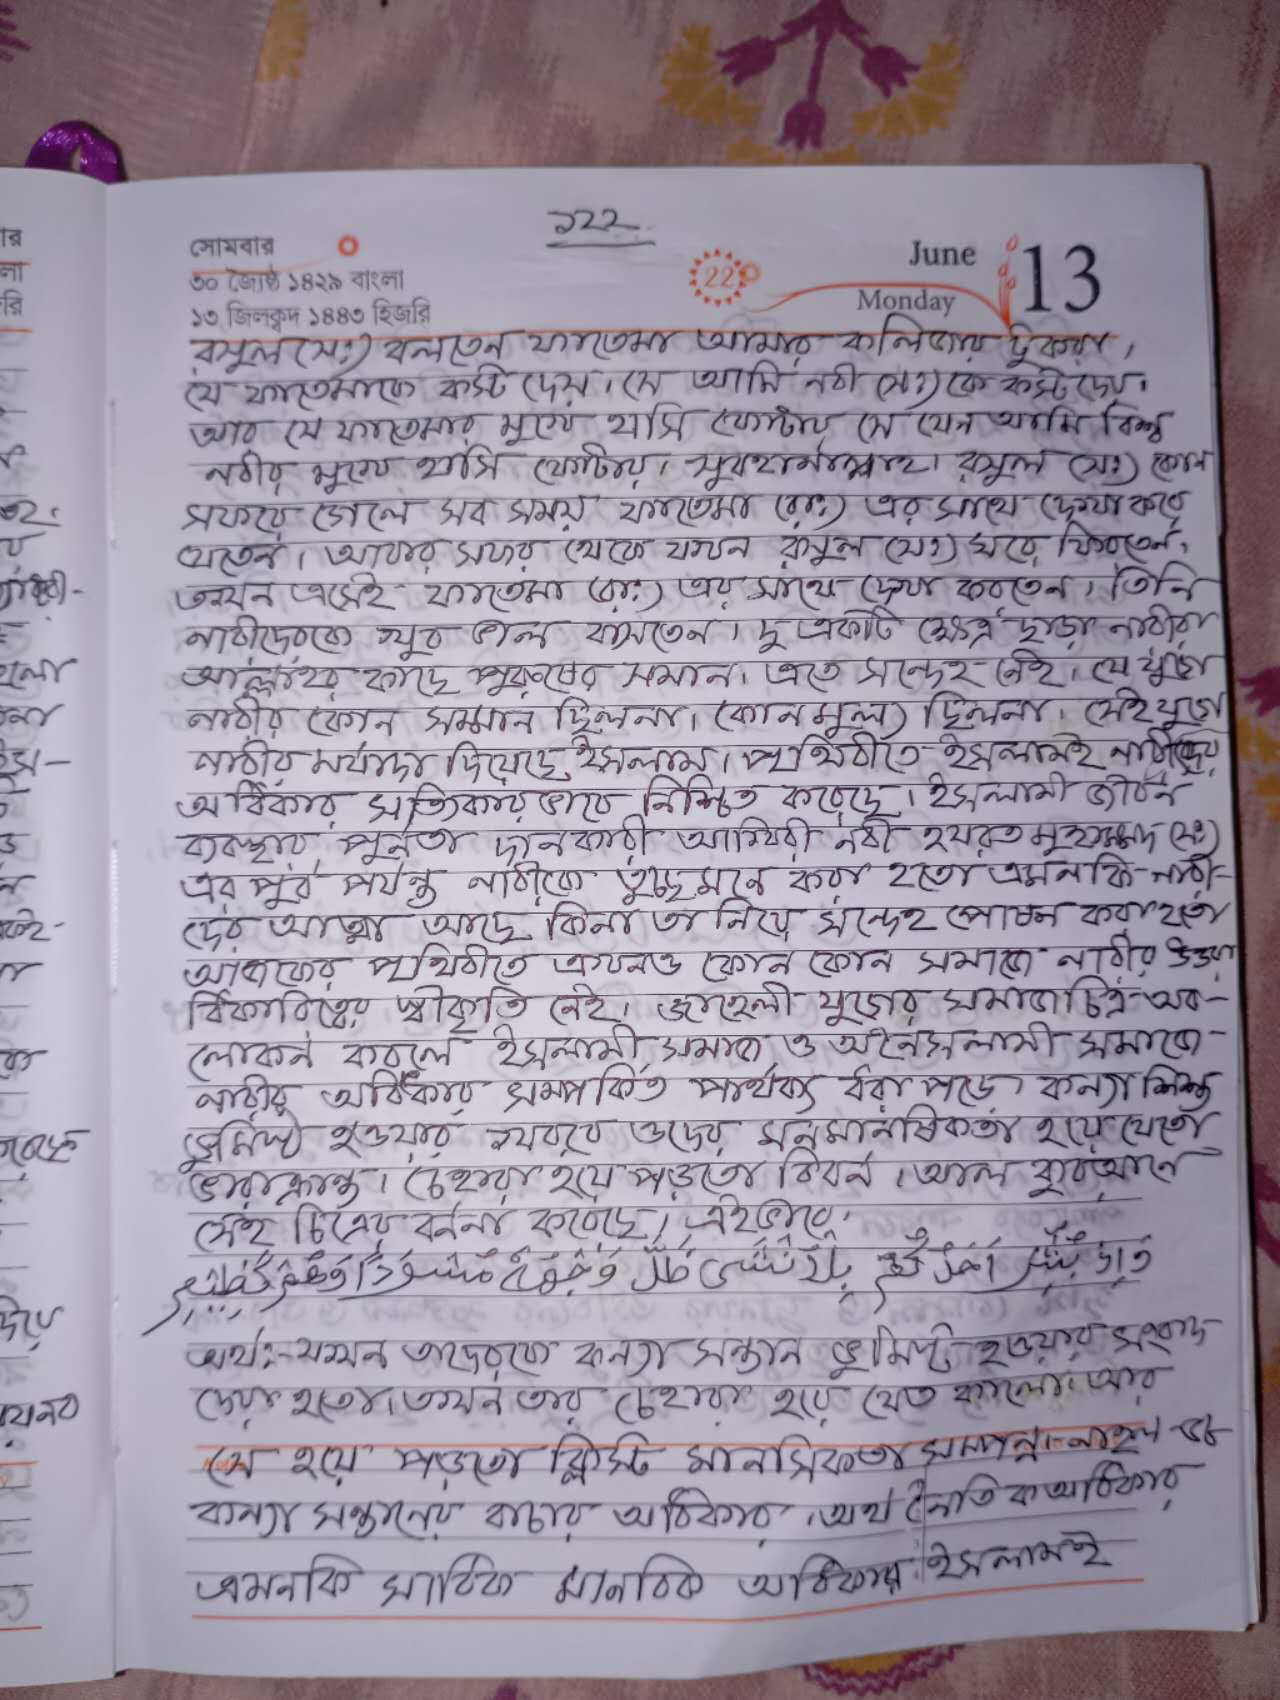 ১২২
সোমবার
৩০ জ্যৈষ্ঠ ১৪২৯ বাংলা
১৩ জিলক্বদ ১৪৪৩ হিজরি
22
June
Monday
13
রসুল (সঃ) বলতেন ফাতেমা আমার কলিজার টুকরা,
যে ফাতেমাকে কস্ট দেয়। সে আমি নবী (সঃ) কে কস্ট দেয়।
আর যে ফাতেমার মুখে হাসি ফোটায় সে যেন আমি বিশ্ব
নবীর মুখে হাসি ফোটায়। সুবহানাল্লাহ। রসুল (সঃ) কোন
সফরে গেলে সব সময় ফাতেমা (রাঃ) এর সাথে দেখা করে
যেতেন। আবার সফর থেকে যখন রসুল (সঃ) ঘরে ফিরতেন,
তখন এসেই ফাতেমা (রাঃ) এর সাথে দেখা করতেন। তিনি
নারীদেরকে খুব ভাল বাসতেন। দু একটি ক্ষেত্র ছাড়া নারীরা
আল্লাহর কাছে পুরুষের সমান। এতে সন্দেহ নেই। যে যুগে
নারীর কোন সম্মান ছিলনা। কোন মূল্য ছিলনা। সেই যুগে
নারীর মর্যাদা দিয়েছে ইসলাম। পৃথিবীতে ইসলামই নারীদের
অধিকার সত্যিকার ভাবে নিশ্চিত করেছে। ইসলামী জীবন
ব্যবস্থার পুর্নতা দানকারী আখিরী নবী হযরত মুহাম্মদ (সঃ)
এর পুর্ব পর্যন্ত নারীকে তুচ্ছ মনে করা হতো এমনকি নারী-
দের আত্মা আছে কিনা তা নিয়ে সন্দেহ পোষন করা হতো
আজকের পৃথিবীতে এখনও কোন কোন সমাজে নারীর উত্তরা
ধিকারিত্বের স্বীকৃতি নেই। জাহেলী যুগের সমাজ চিত্র অব-
লোকন করলে ইসলামী সমাজ ও অনৈসলামী সমাজে
নারীর অধিকার সম্পর্কিত পার্থক্য ধরা পড়ে। কন্যা শিশু
ভুমিষ্ট হওয়ার খবরে ওদের মনমানষিকতা হয়ে যেতো
ভারাক্রান্ত। চেহারা হয়ে পড়তো বিবর্ন। আল কুরআনে
সেই চিত্রের বর্ননা করেছে। এইভাবে,
অর্থ:- যখন তাদেরকে কন্যা সন্তান ভুমিস্ট হওয়ার সংবাদ
দেয়া হতো। তখন তার চেহারা হয়ে যেত কালো। আর
সে হয়ে পড়তো ক্লিস্ট মানসিকতা সম্পন্ন। নাহল ৫৮
কন্যা সন্তানের বাচার অধিকার, অর্থ নৈতিক অধিকার
এমনকি সার্বিক মানবিক অধিকার ইসলামই